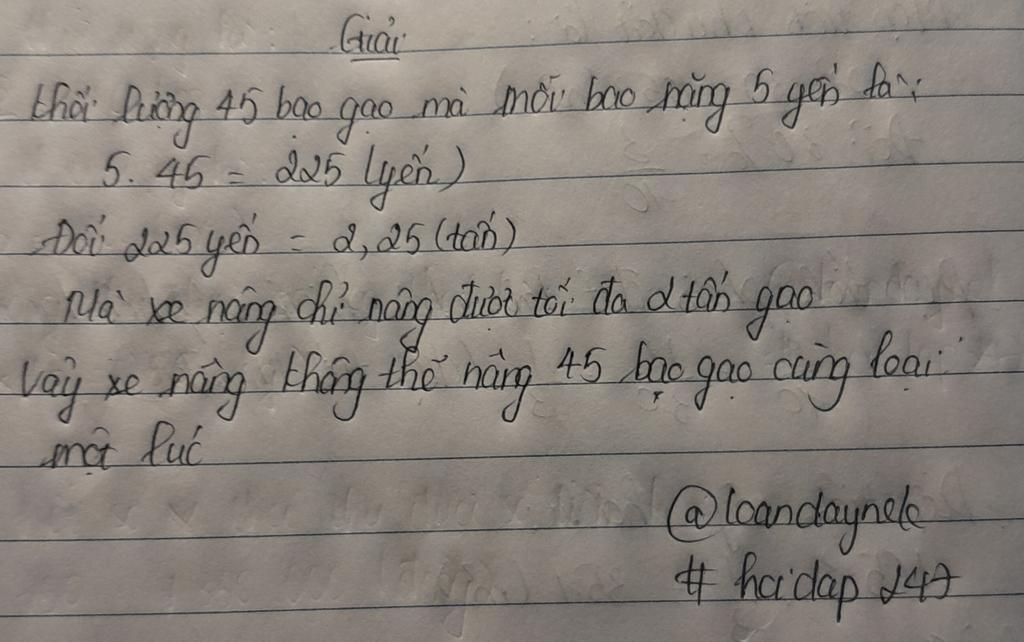 Giải
Khối lượng 45 bao gạo mà mỗi bao nặng 5 yến là:
5. 45 = 225 (yến)
Đổi 225 yến = 2,25 (tấn)
Mà xe nâng chỉ nâng được tối đa 2 tấn gạo
Vậy xe nâng không thể nâng 45 bao gạo cùng loại
một lúc
@loandaynek
# hoidap 247